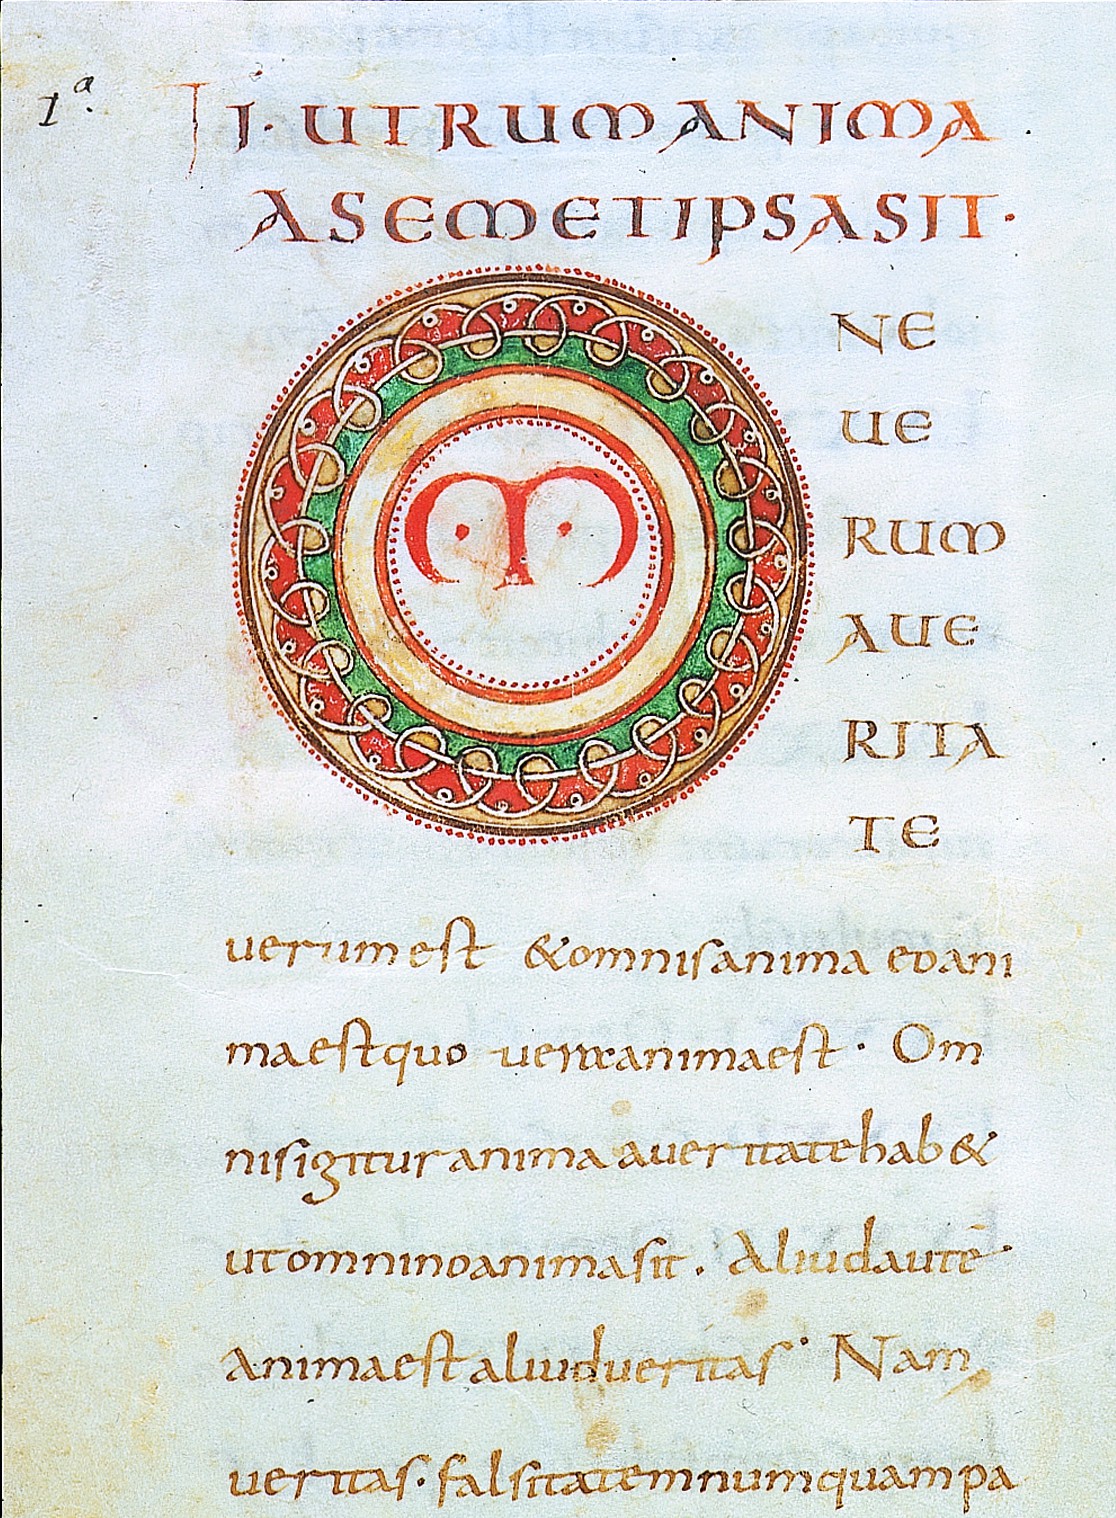 1ª.
I. UTRUM ANIMA
A SEMETIPSA SIT.
OM
NE
UE
RUM
AUE
RITA
TE
uerum est & omnis anima eo ani
ma est quo uera anima est. Om
nis igitur anima a ueritate hab&
ut omnino anima sit. Aliud autē
anima est aliud ueritas. Nam
ueritas. falsitatem numquam pa